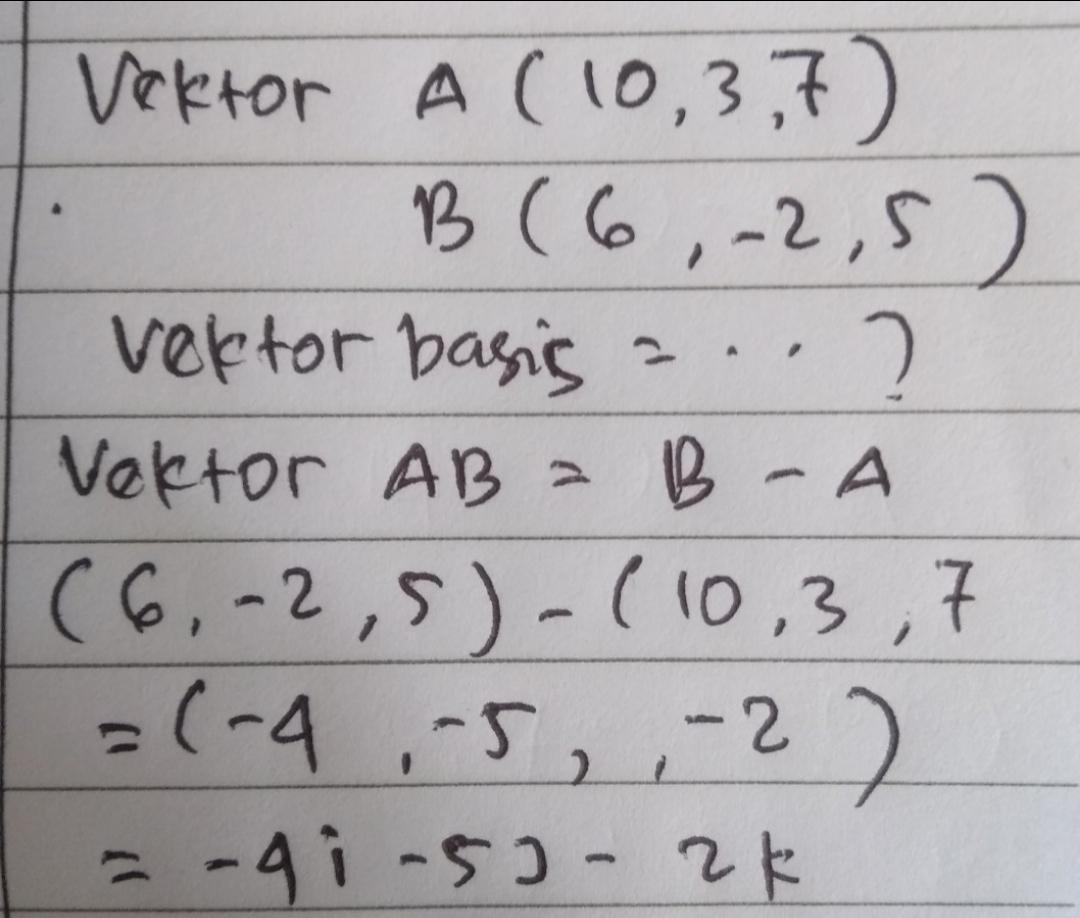 Vektor A (10,3,7)
B (6,-2,5)
Vektor basis = ..?
Vektor AB = B - A
(6,-2,5)-(10,3,7
=(-4,-5,,-2)
= -4i -5j - 2k